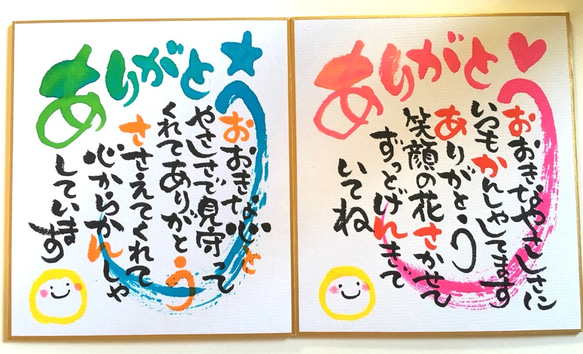 ありがとう
おおきな心と
やさしさで見守って
くれてありがとう
ささえてくれて
心からかんしゃ
しています
ありがとう
おおきなやさしさに
いつもかんしゃしてます
ありがとう
笑顔の花さかせて
ずっとげんきで
いてね